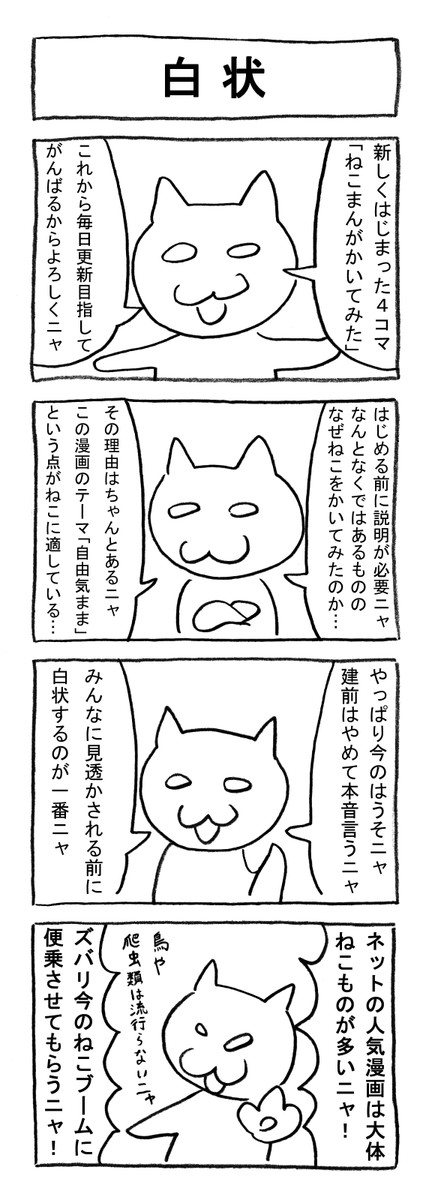 白状
新しくはじまった４コマ
「ねこまんがかいてみた」
これから毎日更新目指して
がんばるからよろしくニャ
はじめる前に説明が必要ニャ
なんとなくではあるものの
なぜねこをかいてみたのか…
その理由はちゃんとあるニャ
この漫画のテーマ「自由気まま」
という点がねこに適している…
やっぱり今のはうそニャ
建前はやめて本音言うニャ
みんなに見透かされる前に
白状するのが一番ニャ
ネットの人気漫画は大体
ねこものが多いニャ！
鳥や
爬虫類は流行らないニャ
ズバリ今のねこブームに
便乗させてもらうニャ！